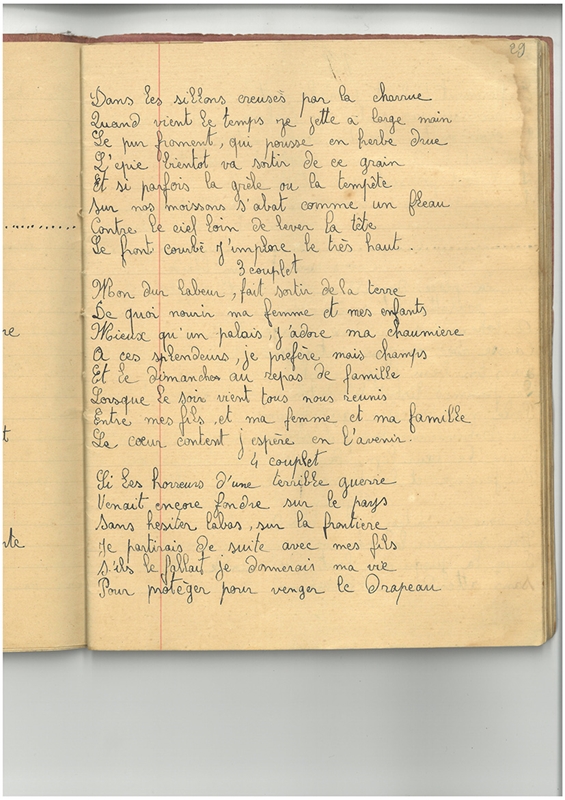 29
Dans les sillons creusés par la charrue
Quand vient le temps ze jette a large main
Le pur froment, qui pousse en herbe drue
L'epie bientot va sortir de ce grain
Et si parfois la grêle ou la tempête
Sur nos moissons s'abat comme un fleau
Contre le ciel loin de lever la tête
Le front courbé j'implore le très haut.
3 couplet
Mon dur labeur, fait sortir de la terre
De quoi nourir ma femme et mes enfants
Mieux qu'un palais, j'adore ma chaumière
A ces splendeurs, je prefère mais champs
Et le dimanches au repas de famille
Lorsque le soir vient tous nous reunis
Entre mes fils, et ma femme et ma famille
Le cœur content j'espère en l'avenir.
4 couplet
Si les horreurs d'une terrible guerre
Venait encore fondre sur le pays
Sans hesiter labas, sur la frontiere
Je partirais de suite avec mes fils
S'ils le fallait je donnerais ma vie
Pour protèger pour venger le Drapeau